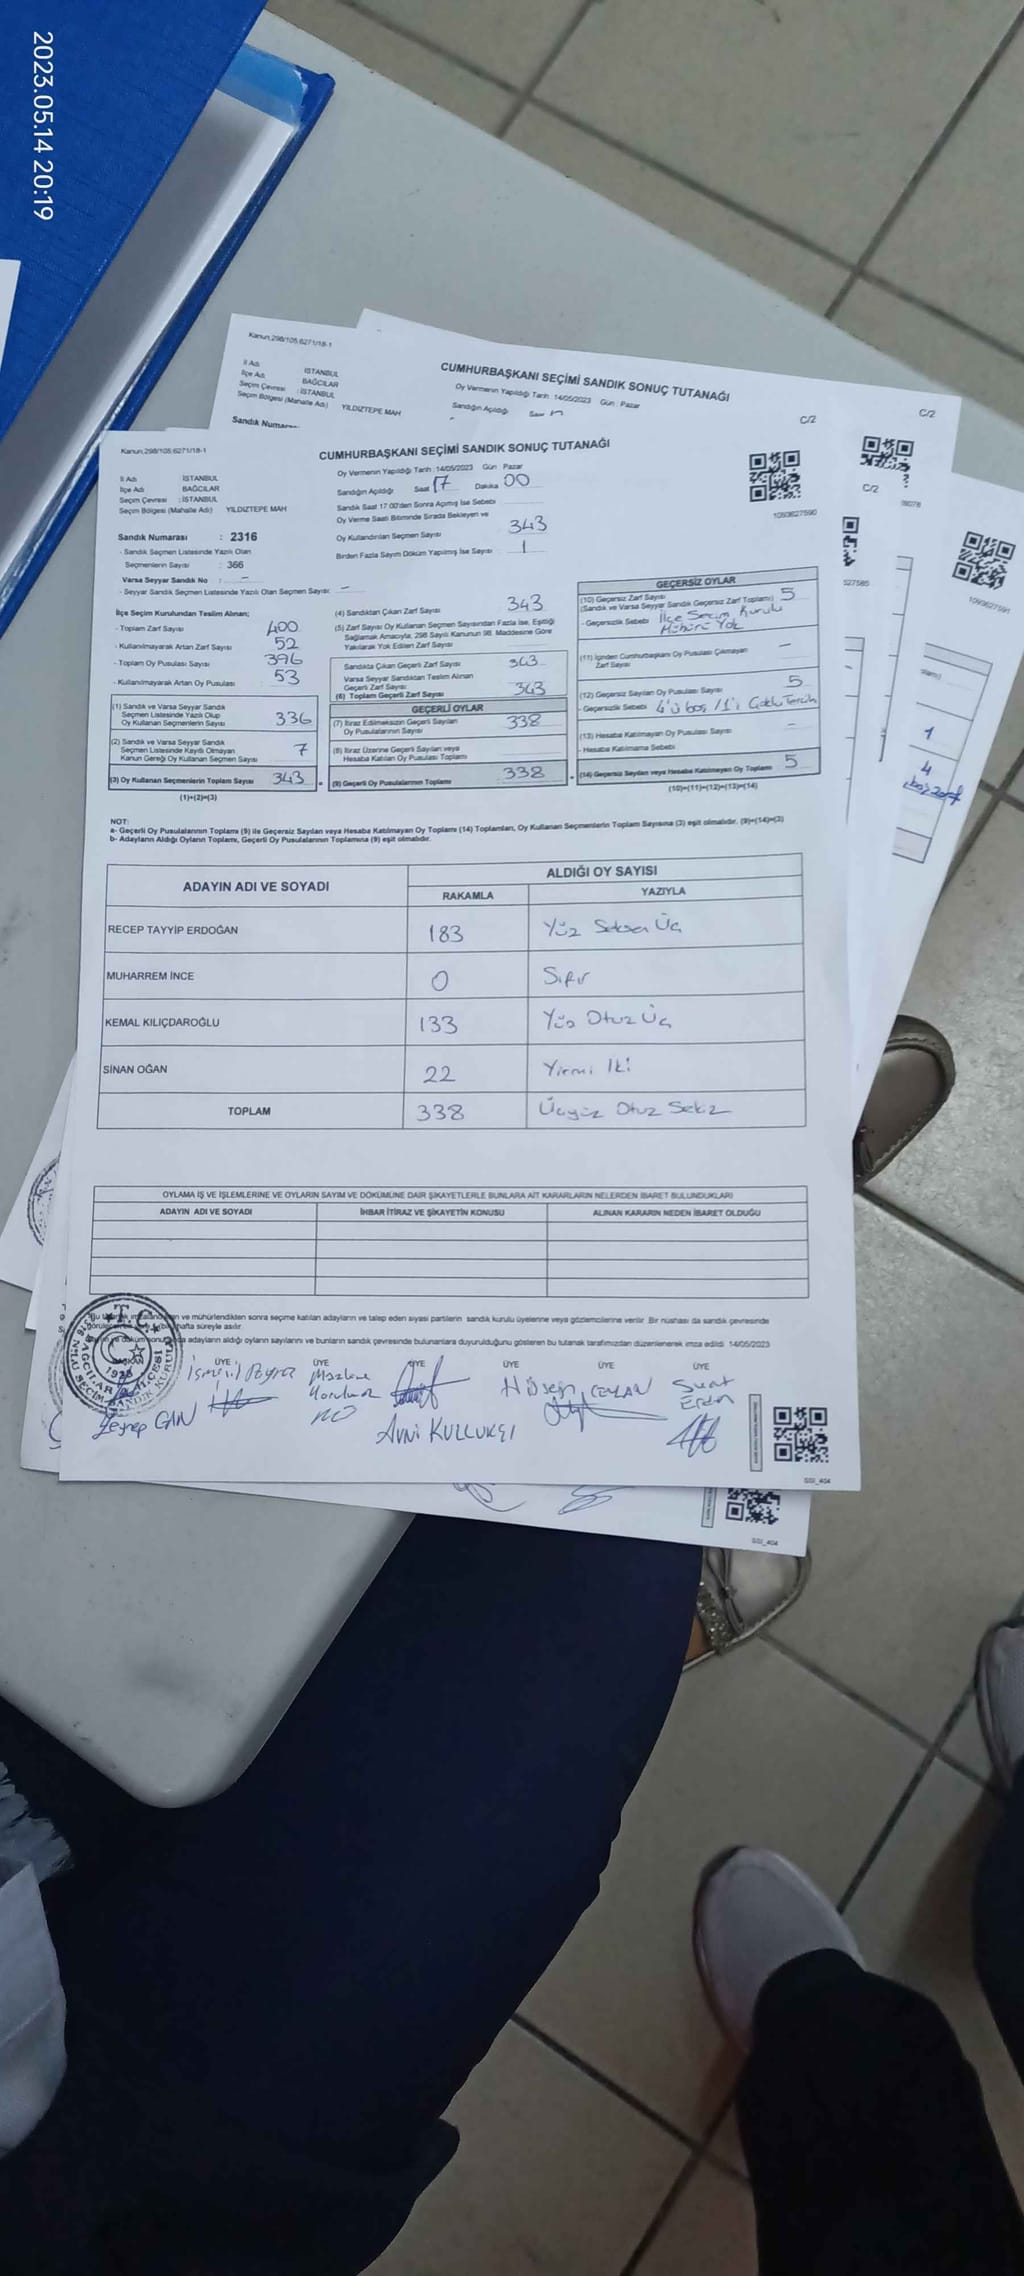 2023.05.14 20:19
Kanun,298/105,6271/18-1
İl Adı İSTANBUL
İlçe Adı BAĞCILAR
Seçim Çevresi : İSTANBUL
Seçim Bölgesi (Mahalle Adı) YILDIZTEPE MAH
Sandık
CUMHURBAŞKANI SEÇİMİ SANDIK SONUÇ TUTANAĞI
Oy Vermenin Yapıldığı Tarih :14/05/2023 Gün : Pazar
Sandığın Açıldığı
C/2
C/2
C/2
1093627591
Kanun,298/105,6271/18-1
CUMHURBAŞKANI SEÇİMİ SANDIK SONUÇ TUTANAĞI
İl Adı İSTANBUL
İlçe Adı BAĞCILAR
Seçim Çevresi : İSTANBUL
Seçim Bölgesi (Mahalle Adı) YILDIZTEPE MAH
Oy Vermenin Yapıldığı Tarih :14/05/2023 Gün : Pazar
Sandığın Açıldığı Saat 17 Dakika 00
Sandık Saat 17:00'den Sonra Açılmış İse Sebebi
Oy Verme Saati Bitiminde Sırada Bekleyen ve
Oy Kullandırılan Seçmen Sayısı 343
Birden Fazla Sayım Döküm Yapılmış İse Sayısı 1
Sandık Numarası : 2316
- Sandık Seçmen Listesinde Yazılı Olan
Seçmenlerin Sayısı : 366
Varsa Seyyar Sandık No : -
- Seyyar Sandık Seçmen Listesinde Yazılı Olan Seçmen Sayısı: -
İlçe Seçim Kurulundan Teslim Alınan;
- Toplam Zarf Sayısı 400
- Kullanılmayarak Artan Zarf Sayısı 52
- Toplam Oy Pusulası Sayısı 396
- Kullanılmayarak Artan Oy Pusulası 53
(1) Sandık ve Varsa Seyyar Sandık
Seçmen Listesinde Yazılı Olup
Oy Kullanan Seçmenlerin Sayısı 336
(2) Sandık ve Varsa Seyyar Sandık
Seçmen Listesinde Kayıtlı Olmayan
Kanun Gereği Oy Kullanan Seçmen Sayısı 7
(3) Oy Kullanan Seçmenlerin Toplam Sayısı 343
(1)+(2)=(3)
(4) Sandıktan Çıkan Zarf Sayısı 343
(5) Zarf Sayısı Oy Kullanan Seçmen Sayısından Fazla İse, Eşitliği
Sağlamak Amacıyla, 298 Sayılı Kanunun 98. Maddesine Göre
Yakılarak Yok Edilen Zarf Sayısı
Sandıkta Çıkan Geçerli Zarf Sayısı 343
Varsa Seyyar Sandıktan Teslim Alınan
Geçerli Zarf Sayısı
(6) Toplam Geçerli Zarf Sayısı 343
GEÇERLİ OYLAR
(7) İtiraz Edilmeksizin Geçerli Sayılan
Oy Pusulalarının Sayısı 338
(8) İtiraz Üzerine Geçerli Sayılan veya
Hesaba Katılan Oy Pusulası Toplamı
(9) Geçerli Oy Pusulalarının Toplamı 338
1093627590
GEÇERSİZ OYLAR
(10) Geçersiz Zarf Sayısı
(Sandık ve Varsa Seyyar Sandık Geçersiz Zarf Toplamı) 5
- Geçersizlik Sebebi İlçe Seçim Kurulu
Mührü Yok
(11) İçinden Cumhurbaşkanı Oy Pusulası Çıkmayan
Zarf Sayısı -
(12) Geçersiz Sayılan Oy Pusulası Sayısı 5
- Geçersizlik Sebebi 4'ü boş /1'i Çoklu Tercih
(13) Hesaba Katılmayan Oy Pusulası Sayısı -
- Hesaba Katılmama Sebebi
(14) Geçersiz Sayılan veya Hesaba Katılmayan Oy Toplamı 5
(10)+(11)+(12)+(13)=(14)
NOT:
a- Geçerli Oy Pusulalarının Toplamı (9) ile Geçersiz Sayılan veya Hesaba Katılmayan Oy Toplamı (14) Toplamları, Oy Kullanan Seçmenlerin Toplam Sayısına (3) eşit olmalıdır. (9)+(14)=(3)
b- Adayların Aldığı Oyların Toplamı, Geçerli Oy Pusulalarının Toplamına (9) eşit olmalıdır.
ADAYIN ADI VE SOYADI
ALDIĞI OY SAYISI
RAKAMLA YAZIYLA
RECEP TAYYİP ERDOĞAN 183 Yüz Seksen Üç
MUHARREM İNCE 0 Sıfır
KEMAL KILIÇDAROĞLU 133 Yüz Otuz Üç
SİNAN OĞAN 22 Yirmi İki
TOPLAM 338 Üçyüz Otuz Sekiz
OYLAMA İŞ VE İŞLEMLERİNE VE OYLARIN SAYIM VE DÖKÜMÜNE DAİR ŞİKAYETLERLE BUNLARA AİT KARARLARIN NELERDEN İBARET BULUNDUKLARI
ADAYIN ADI VE SOYADI İHBAR İTİRAZ VE ŞİKAYETİN KONUSU ALINAN KARARIN NEDEN İBARET OLDUĞU
ve mühürlendikten sonra seçime katılan adayların ve talep eden siyasi partilerin sandık kurulu üyelerine veya gözlemcilerine verilir. Bir nüshası da sandık çevresinde
hafta süreyle asılır.
adayların aldığı oyların sayılarını ve bunların sandık çevresinde bulunanlara duyurulduğunu gösteren bu tutanak tarafımızdan düzenlenerek imza edildi. 14/05/2023
T.C.
BAŞKAN
ÜYE ÜYE ÜYE ÜYE ÜYE ÜYE
Zeynep CAN
Avni KULLUKÇI
Hüseyin CEYLAN
Suat
SSI_404
SSI_404
1
4
boş zarf